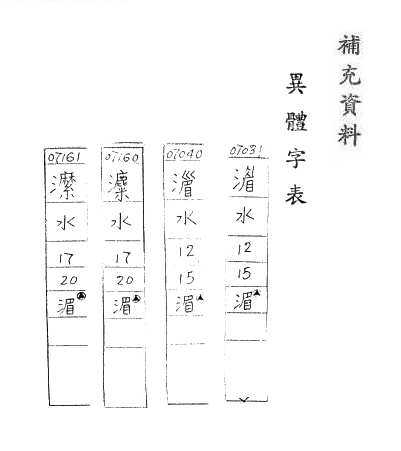 補充資料
異體字表
07031
水
12
15
湄▲
07040
水
12
15
湄▲
07160
水
17
20
湄
07161
水
17
20
湄